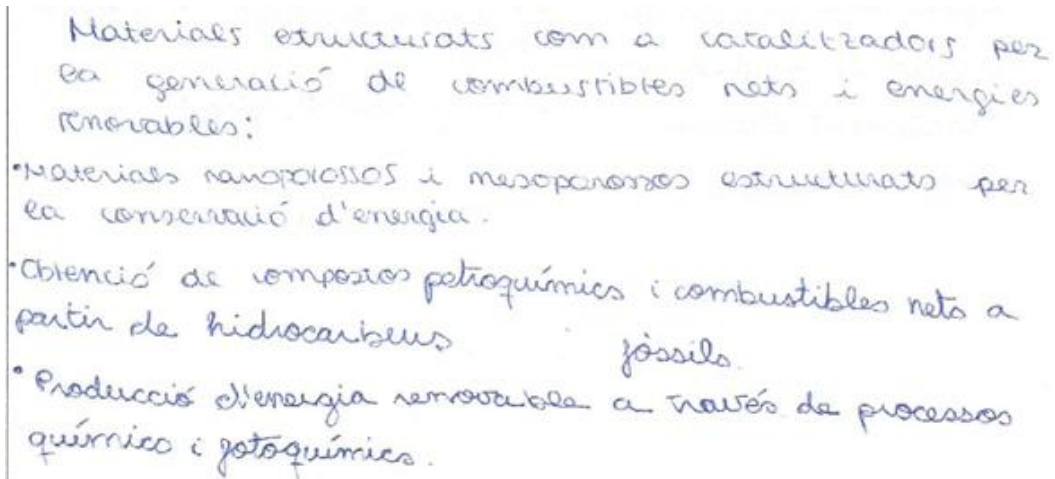 Materials estructurats com a catalitzadors per
la generació de combustibles nets i energies
renovables:
•Materials nanoporossos i mesoporossos estructurats per
la conservació d'energia.
•Obtenció de compostos petroquímics i combustibles nets a
partir de hidrocarbeus fòssils.
•Producció d'energia renovable a través de processos
químics i fotoquímics.